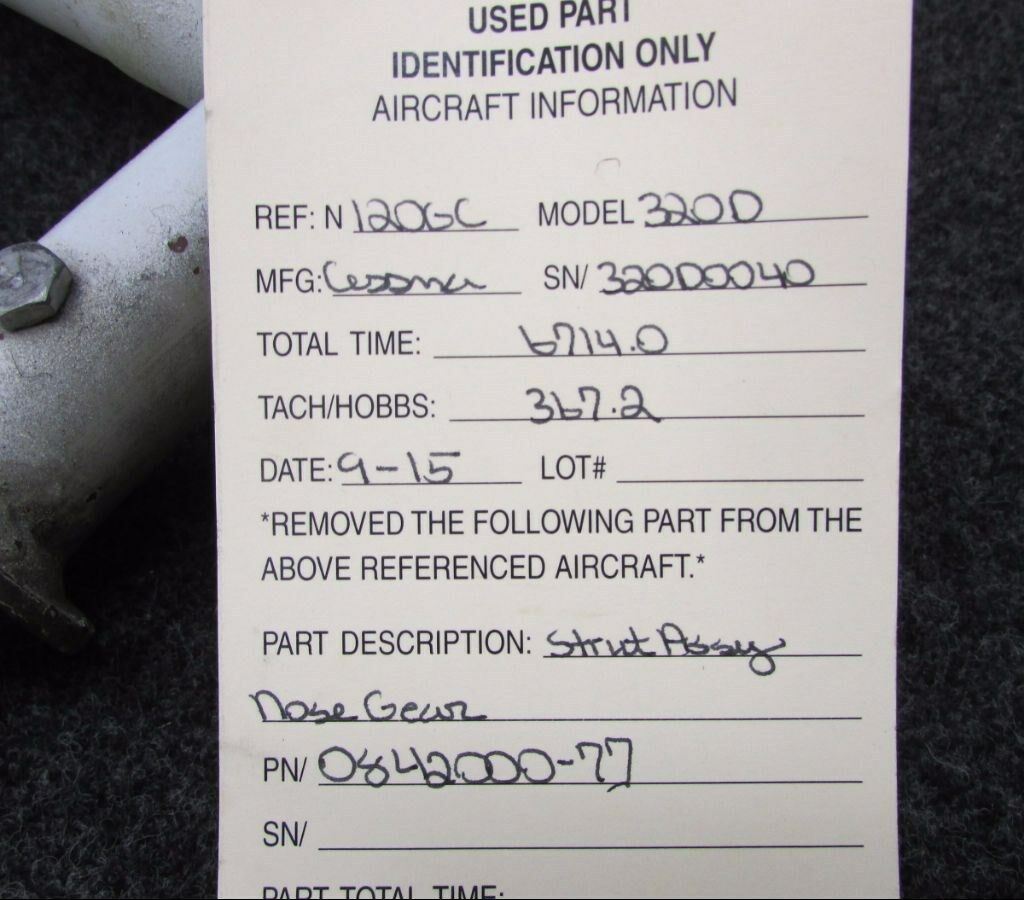 USED PART
IDENTIFICATION ONLY
AIRCRAFT INFORMATION
REF: N 120GC MODEL 320D
MFG: Cessna SN/ 320D0040
TOTAL TIME: 6714.0
TACH/HOBBS: 367.2
DATE: 9-15 LOT#
*REMOVED THE FOLLOWING PART FROM THE
ABOVE REFERENCED AIRCRAFT.*
PART DESCRIPTION: Strut Assy
Nose Gear
PN/ 0842000-77
SN/
PART TOTAL TIME: